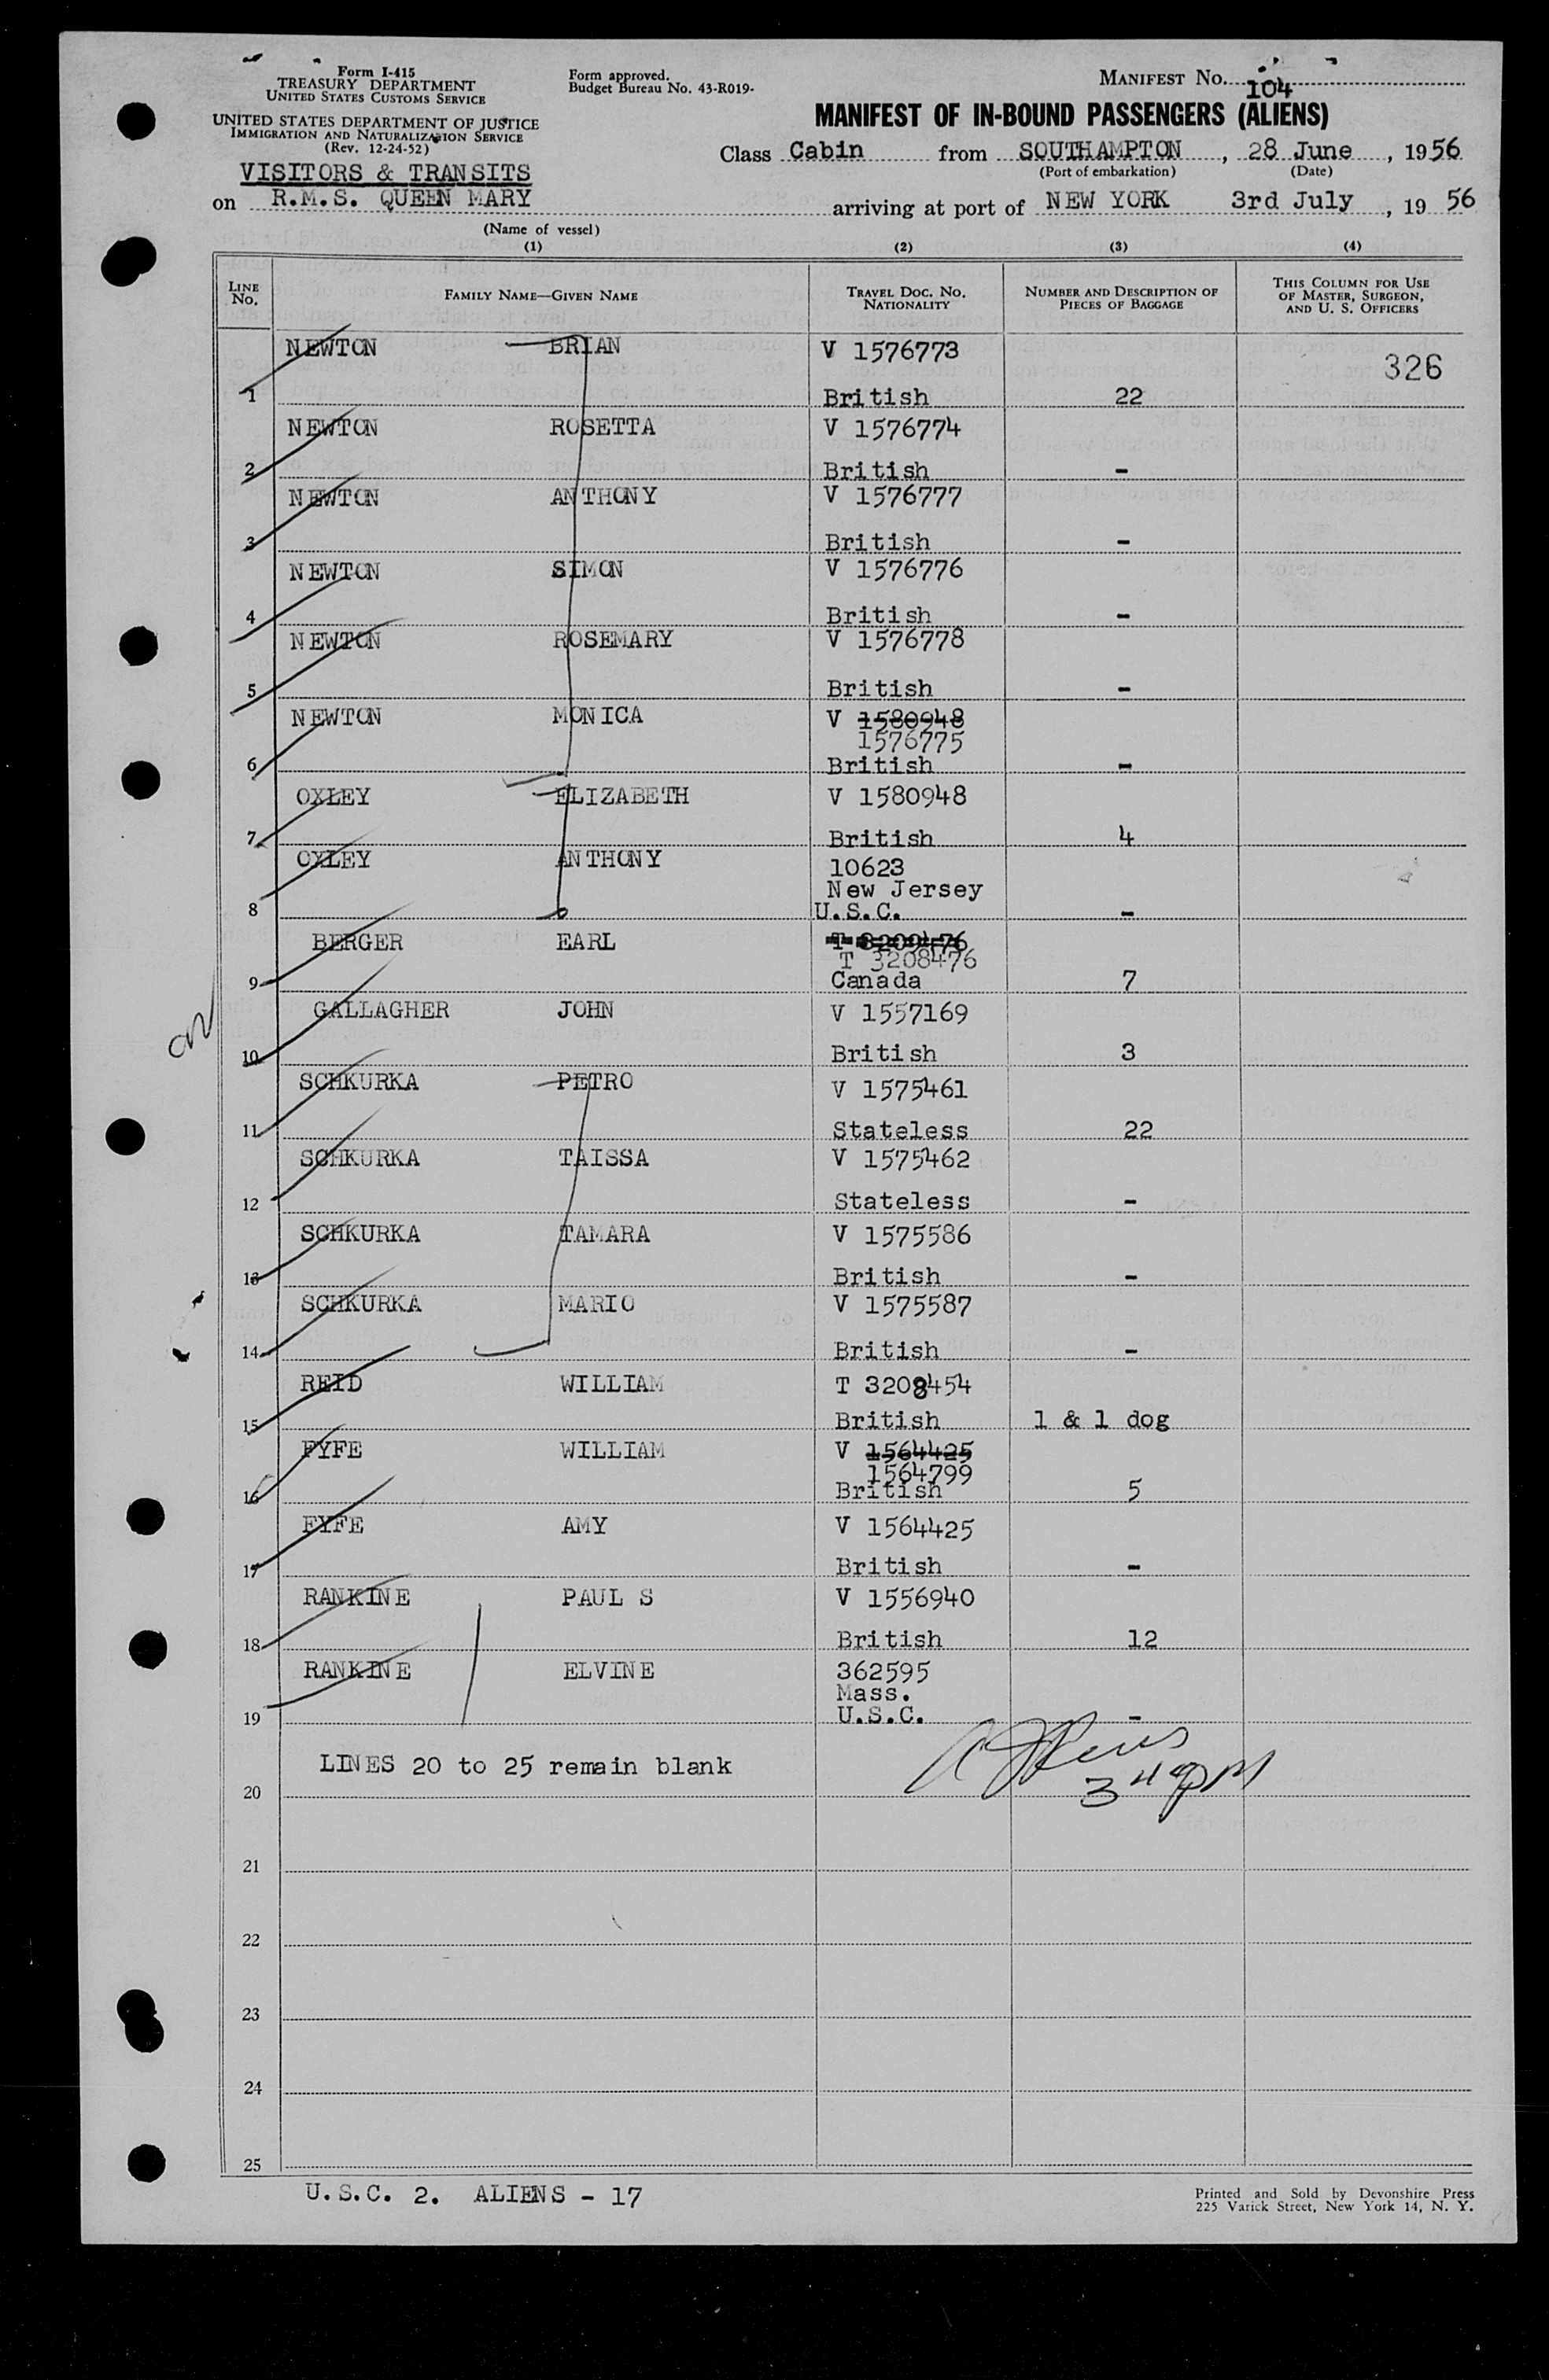 Form I-415
TREASURY DEPARTMENT
UNITED STATES CUSTOMS SERVICE
UNITED STATES DEPARTMENT OF JUSTICE
IMMIGRATION AND NATURALIZATION SERVICE
(Rev. 12-24-52)
VISITORS & TRANSITS
Form approved.
Budget Bureau No. 43-R019-
MANIFEST No. 104
MANIFEST OF IN-BOUND PASSENGERS (ALIENS)
Class Cabin from SOUTHAMPTON, 28 June, 1956
(Port of embarkation) (Date)
on R.M.S. QUEEN MARY arriving at port of NEW YORK 3rd July, 19 56
(Name of vessel)
(1) (2) (3) (4)
LINE No. FAMILY NAME—GIVEN NAME TRAVEL DOC. No. NATIONALITY NUMBER AND DESCRIPTION OF PIECES OF BAGGAGE THIS COLUMN FOR USE OF MASTER, SURGEON, AND U. S. OFFICERS
NEWTON BRIAN V 1576773 326
1 British 22
NEWTON ROSETTA V 1576774
2 British -
NEWTON ANTHONY V 1576777
3 British -
NEWTON SIMON V 1576776
4 British -
NEWTON ROSEMARY V 1576778
5 British -
NEWTON MONICA V 1580948
1576775
6 British -
OXLEY ELIZABETH V 1580948
7 British 4
OXLEY ANTHONY 10623
New Jersey
8 U.S.C. -
BERGER EARL T 3209476
T 3208476
9 Canada 7
GALLAGHER JOHN V 1557169
10 British 3
SCHKURKA PETRO V 1575461
11 Stateless 22
SCHKURKA TAISSA V 1575462
12 Stateless -
SCHKURKA TAMARA V 1575586
13 British -
SCHKURKA MARIO V 1575587
14 British -
REID WILLIAM T 3208454
15 British 1 & 1 dog
FYFE WILLIAM V 1564425
1564799
16 British 5
FYFE AMY V 1564425
17 British -
RANKINE PAUL S V 1556940
18 British 12
RANKINE ELVINE 362595
Mass.
19 U.S.C. -
LINES 20 to 25 remain blank
20
21
22
23
24
25
U.S.C. 2. ALIENS - 17
Printed and Sold by Devonshire Press
225 Varick Street, New York 14, N. Y.